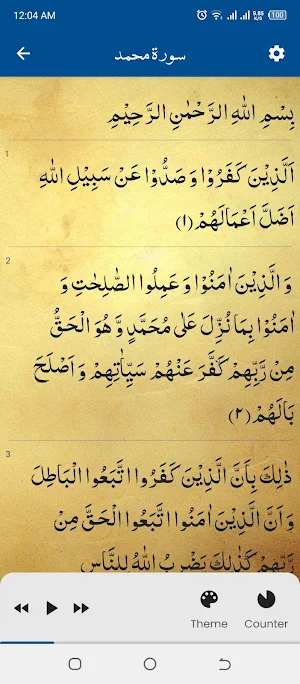 12:04 AM
9.85 K/s
100
سورة محمد
بِسْمِ اللّٰهِ الرَّحْمٰنِ الرَّحِيْمِ
1
اَلَّذِيْنَ كَفَرُوْا وَ صَدُّوْا عَنْ سَبِيْلِ اللّٰهِ
اَضَلَّ اَعْمَالَهُمْ (۱)
2
وَ الَّذِيْنَ اٰمَنُوْا وَ عَمِلُوا الصّٰلِحٰتِ وَ
اٰمَنُوْا بِمَا نُزِّلَ عَلٰى مُحَمَّدٍ وَّ هُوَ الْحَقُّ
مِنْ رَّبِّهِمْ كَفَّرَ عَنْهُمْ سَيِّاٰتِهِمْ وَ اَصْلَحَ
بَالَهُمْ (۲)
3
ذٰلِكَ بِاَنَّ الَّذِيْنَ كَفَرُوا اتَّبَعُوا الْبَاطِلَ
وَ اَنَّ الَّذِيْنَ اٰمَنُوا اتَّبَعُوا الْحَقَّ مِنْ
رَّبِّهِمْ كَذٰلِكَ يَضْرِبُ اللّٰهُ لِلنَّاسِ
Theme
Counter